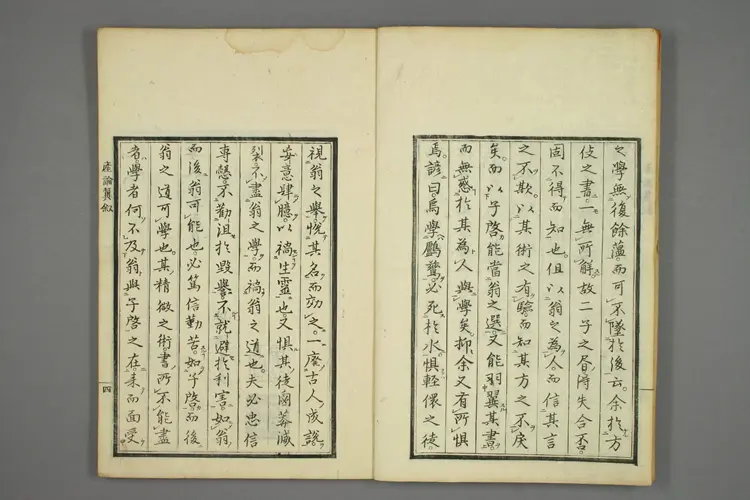 之學無復餘蘊而可不墜於後云余於方
伎之書一無所解故二子之得失合否
固不得而知也但以翁之為人而信其言
之不欺以其術之有驗而知其方之不戾
矣而以子啓能當翁之選又能羽翼其書
而無惑於其為人與學矣抑余又有所惧
焉諺曰烏學鸕鶿必死於水惧輕儇之徒
視翁之舉悅其名而効之一廢古人成說
妄意肆臆以禍生靈也又惧其徒鹵莽滅
裂不盡翁之學而禍翁之道也夫必忠信
專慤不勸沮於毀譽不就避於利害如翁
而後翁可能也必篤信勤苦如子啓而後
翁之道可學也其精微之術書所不能盡
者學者何不及翁與子啓之在来而面受
産論翼敘
四